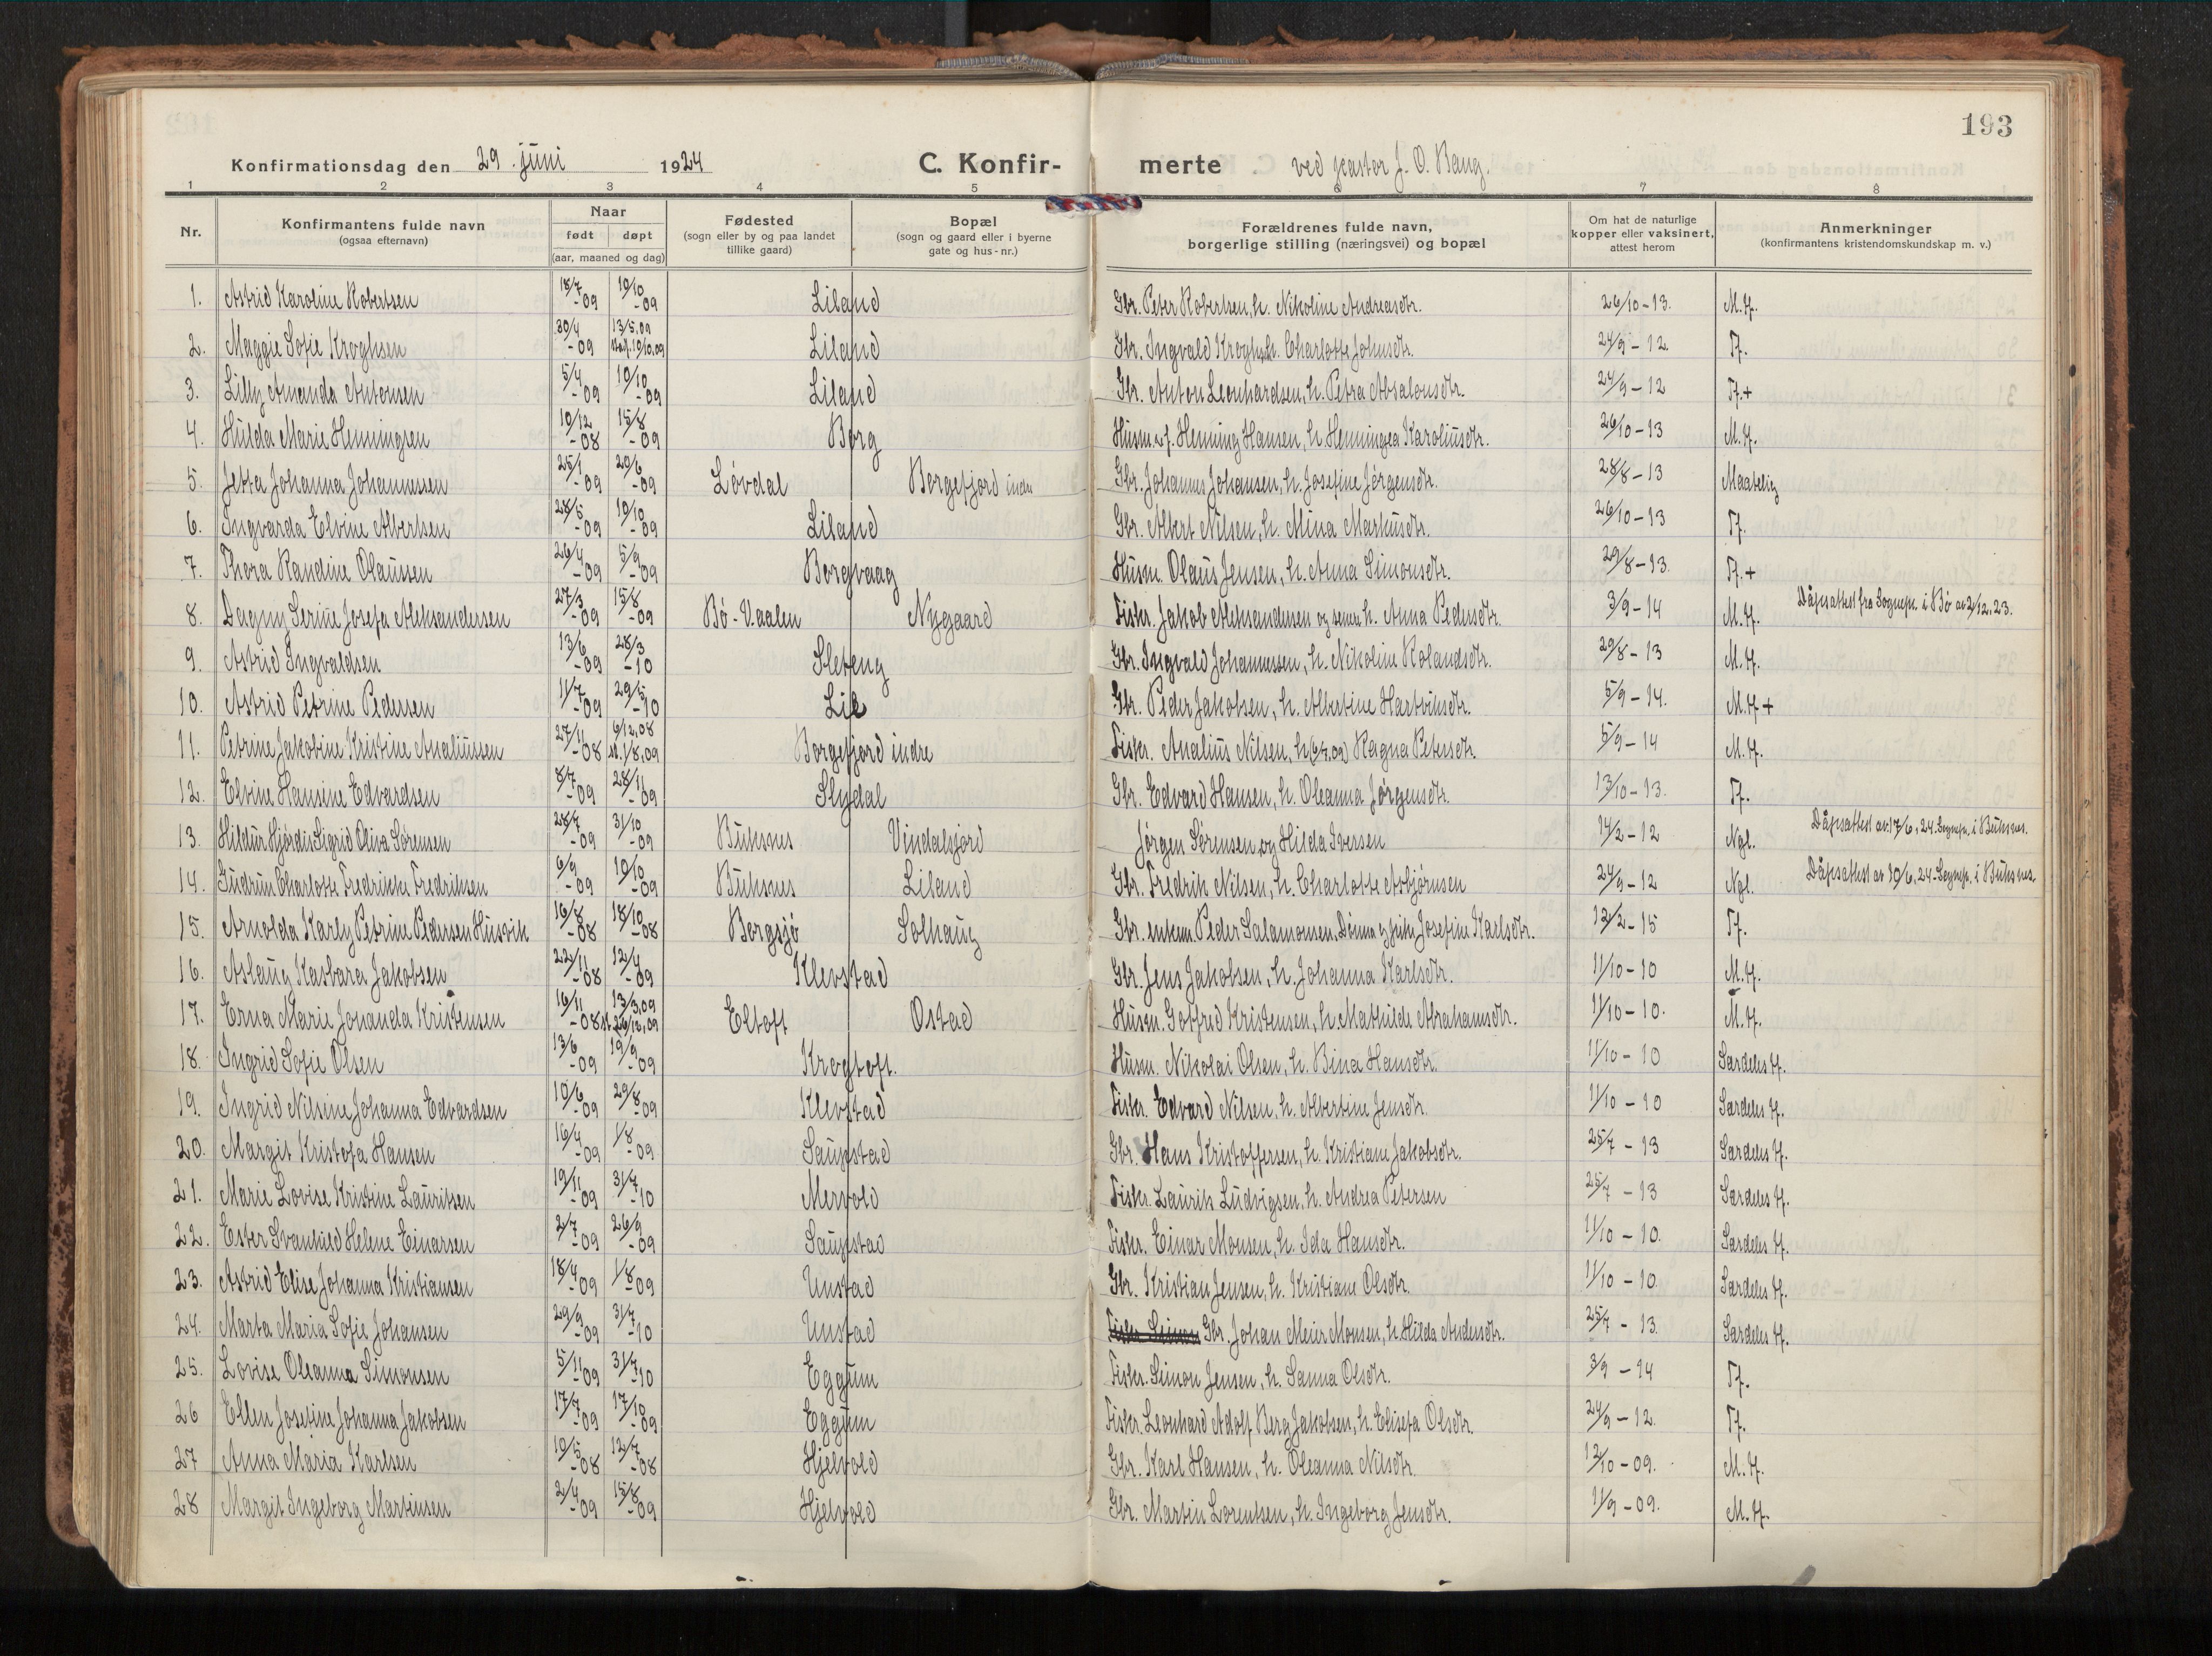 193
Konfirmationsdag den 29. juni 1924 C. Konfirmerte ved pastor J. O. Bang.
1 2 3 4 5 6 7 8
Nr. Konfirmantens fulde navn (ogsaa efternavn) Naar født døpt (aar, maaned og dag) Fødested (sogn eller by og paa landet tillike gaard) Bopæl (sogn og gaard eller i byerne gate og hus-nr.) Forældrenes fulde navn, borgerlige stilling (næringsvei) og bopæl Om hat de naturlige kopper eller vaksinert, attest herom Anmerkninger (konfirmantens kristendomskundskap m. v.)
1. Astrid Karoline Robertsen 18/7-09 10/10-09 Liland Gbr. Peter Robertsen, h. Nikoline Andreasdtr. 26/10-13. M.H.
2. Maggie Sofie Kroghsen 30/4-09 13/5.09 10/10.09 Liland Gbr. Ingvald Krogh, h. Charlotte Johnsdtr. 24/9-12. Tf.
3. Lilly Amanda Antonsen 5/4-09 10/10-09 Liland Gbr. Anton Leonhardsen, h. Petra Absalonsdtr. 24/9-12 Tf.+
4. Hulda Marie Henningsen 10/12-08 15/8-09 Borg Husm. Henning Hansen, h. Henningea Karoliusdtr. 26/10-13 M.H.
5. Jetta Johanna Johannessen 25/1-09 20/6-09 Løvdal Borgefjord indre Gbr. Johannes Johansen, h. Josefine Jørgensdtr. 28/8-13 Maatelig
6. Ingvarda Elvine Albertsen 28/5-09 10/10-09 Liland Gbr. Albert Nilsen, h. Mina Markusdtr. 26/10-13 Tf.
7. Thora Randine Olaussen 26/4-09 5/9-09 Borgvaag Husm. Olaus Jensen, h. Anna Simonsdtr. 29/8-13. Tf.+
8. Dagny Serine Josefa Aleksandersen 27/3-09 15/8-09 Bø-Vaalen Nygaard Fisker. Jakob Aleksandersen og senere h. Anna Pedersdtr. 3/9-14 M.H. Dåpsattest fra Sognepr. i Bø av 2/12.23.
9. Astrid Ingvaldsen 13/6-09 28/3-10 Sleteng Gbr. Ingvald Johannessen, h. Nikoline Rolandsdtr. 29/8-13 M.H.
10. Astrid Petrine Pedersen 11/7-09 29/5-10 Lie Gbr. Peder Jakobsen, h. Albertine Hartviksdtr. 5/9-14. M.H+
11. Petrine Jakobine Kristine Analiussen 27/11-08 6/12.08 1/8.09 Borgefjord indre Fisker. Analius Nilsen, h. Ragna Petersdtr. 5/9-14 M.H.
12. Elvine Hansine Edvardsen 8/7-09 28/11-09 Slydal Gbr. Edvard Hansen, h. Oleanna Jørgensdtr. 13/10-13. Tf.
13. Hildur Hjørdis Sigrid Oliva Sørensen 28/7-09 31/10-09 Buksnes Vindalsjord Jørgen Sørensen og Hilda Iversen 14/2-12 Ngl. Dåpsattest av 17/6.24. Sognepr. i Buksnes.
14. Gudrun Charlotte Fredrikke Fredriksen 6/9-09 10/10-09 Buksnes Liland Gbr. Fredrik Nilsen, h. Charlotte Asbjørnsen 24/9-12 Ngl. Dåpsattest av 10/6.24. Sognepr. i Buksnes.
15. Arnolda Karly Petrine Pedersen Husvik 16/8-08 18/10-08 Bergsjø Solhaug Gbr. enkem. Peder Salamonsen, Dønna og Josefine Karlsdtr. 12/2-15 Tf.
16. Aslaug Kasbara Jakobsen 22/11-08 12/4-09 Klevstad Gbr. Jens Jakobsen, h. Johanna Karlsdtr. 11/10-10 M.H.
17. Erna Marie Johanda Kristensen 16/11-08 13/3.09 26/12.09 Eltoft Ostad Husm. Gotfred Kristensen, h. Mathilde Abrahamsdtr. 11/10-10. M.H.
18. Ingrid Sofie Olsen 13/6-09 19/9-09 Krogtoft. Husm. Nikolai Olsen, h. Bina Hansdtr. 11/10-10 Særdeles H.
19. Ingrid Nilsine Johanna Edvardsen 10/6-09 29/8-09 Klevstad Fisker. Edvard Nilsen, h. Albertine Jensdtr. 11/10-10 Særdeles H.
20. Margit Kristofa Hansen 16/4-09 1/8-09 Saupstad Gbr. Hans Kristoffersen, h. Kristiane Jakobsdtr. 25/7-13 Særdeles H.
21. Marie Lovise Kristine Lauritsen 19/11-09 31/7-10 Mervold Fisker. Laurits Ludvigsen, h. Andrea Petersen 25/7-13 Særdeles H.
22. Ester Svanhild Helene Einarsen 2/7-09 26/9-09 Saupstad Fisker. Einar Monsen, h. Ida Hansdtr. 11/10-10. Særdeles H.
23. Astrid Elise Johanna Kristiansen 18/4-09 1/8-09 Unstad Gbr. Kristian Jensen, h. Kristiane Olsdtr. 11/10-10. Særdeles H.
24. Marta Maria Sofie Johansen 29/9-09 31/7-10 Unstad Gbr. Johan Meier Monsen, h. Hilda Andersdtr. 25/7-13. Særdeles H.
25. Lovise Oleanna Simonsen 5/11-09 31/7-10 Eggum Fisker. Simon Jensen, h. Sanna Olsdtr. 3/9-14 Tf.
26 Ellen Josefine Johanna Jakobsen 17/7-09 17/10-09 Eggum Fisker Leonhard Adolf Berg Jakobsen, h. Elisefa Olsdtr. 24/9-12. Tf.
27 Anna Maria Karlsen 10/5-08 12/7-08 Hjelvold Gbr. Karl Hansen, h. Oleanna Nilsdtr. 12/10-09. M.H.
28 Margit Ingeborg Martinsen 2/4-09 15/8-09 Hjelvold Gbr. Martin Lorentsen, h. Ingeborg Jensdtr. 11/9-09. M.H.